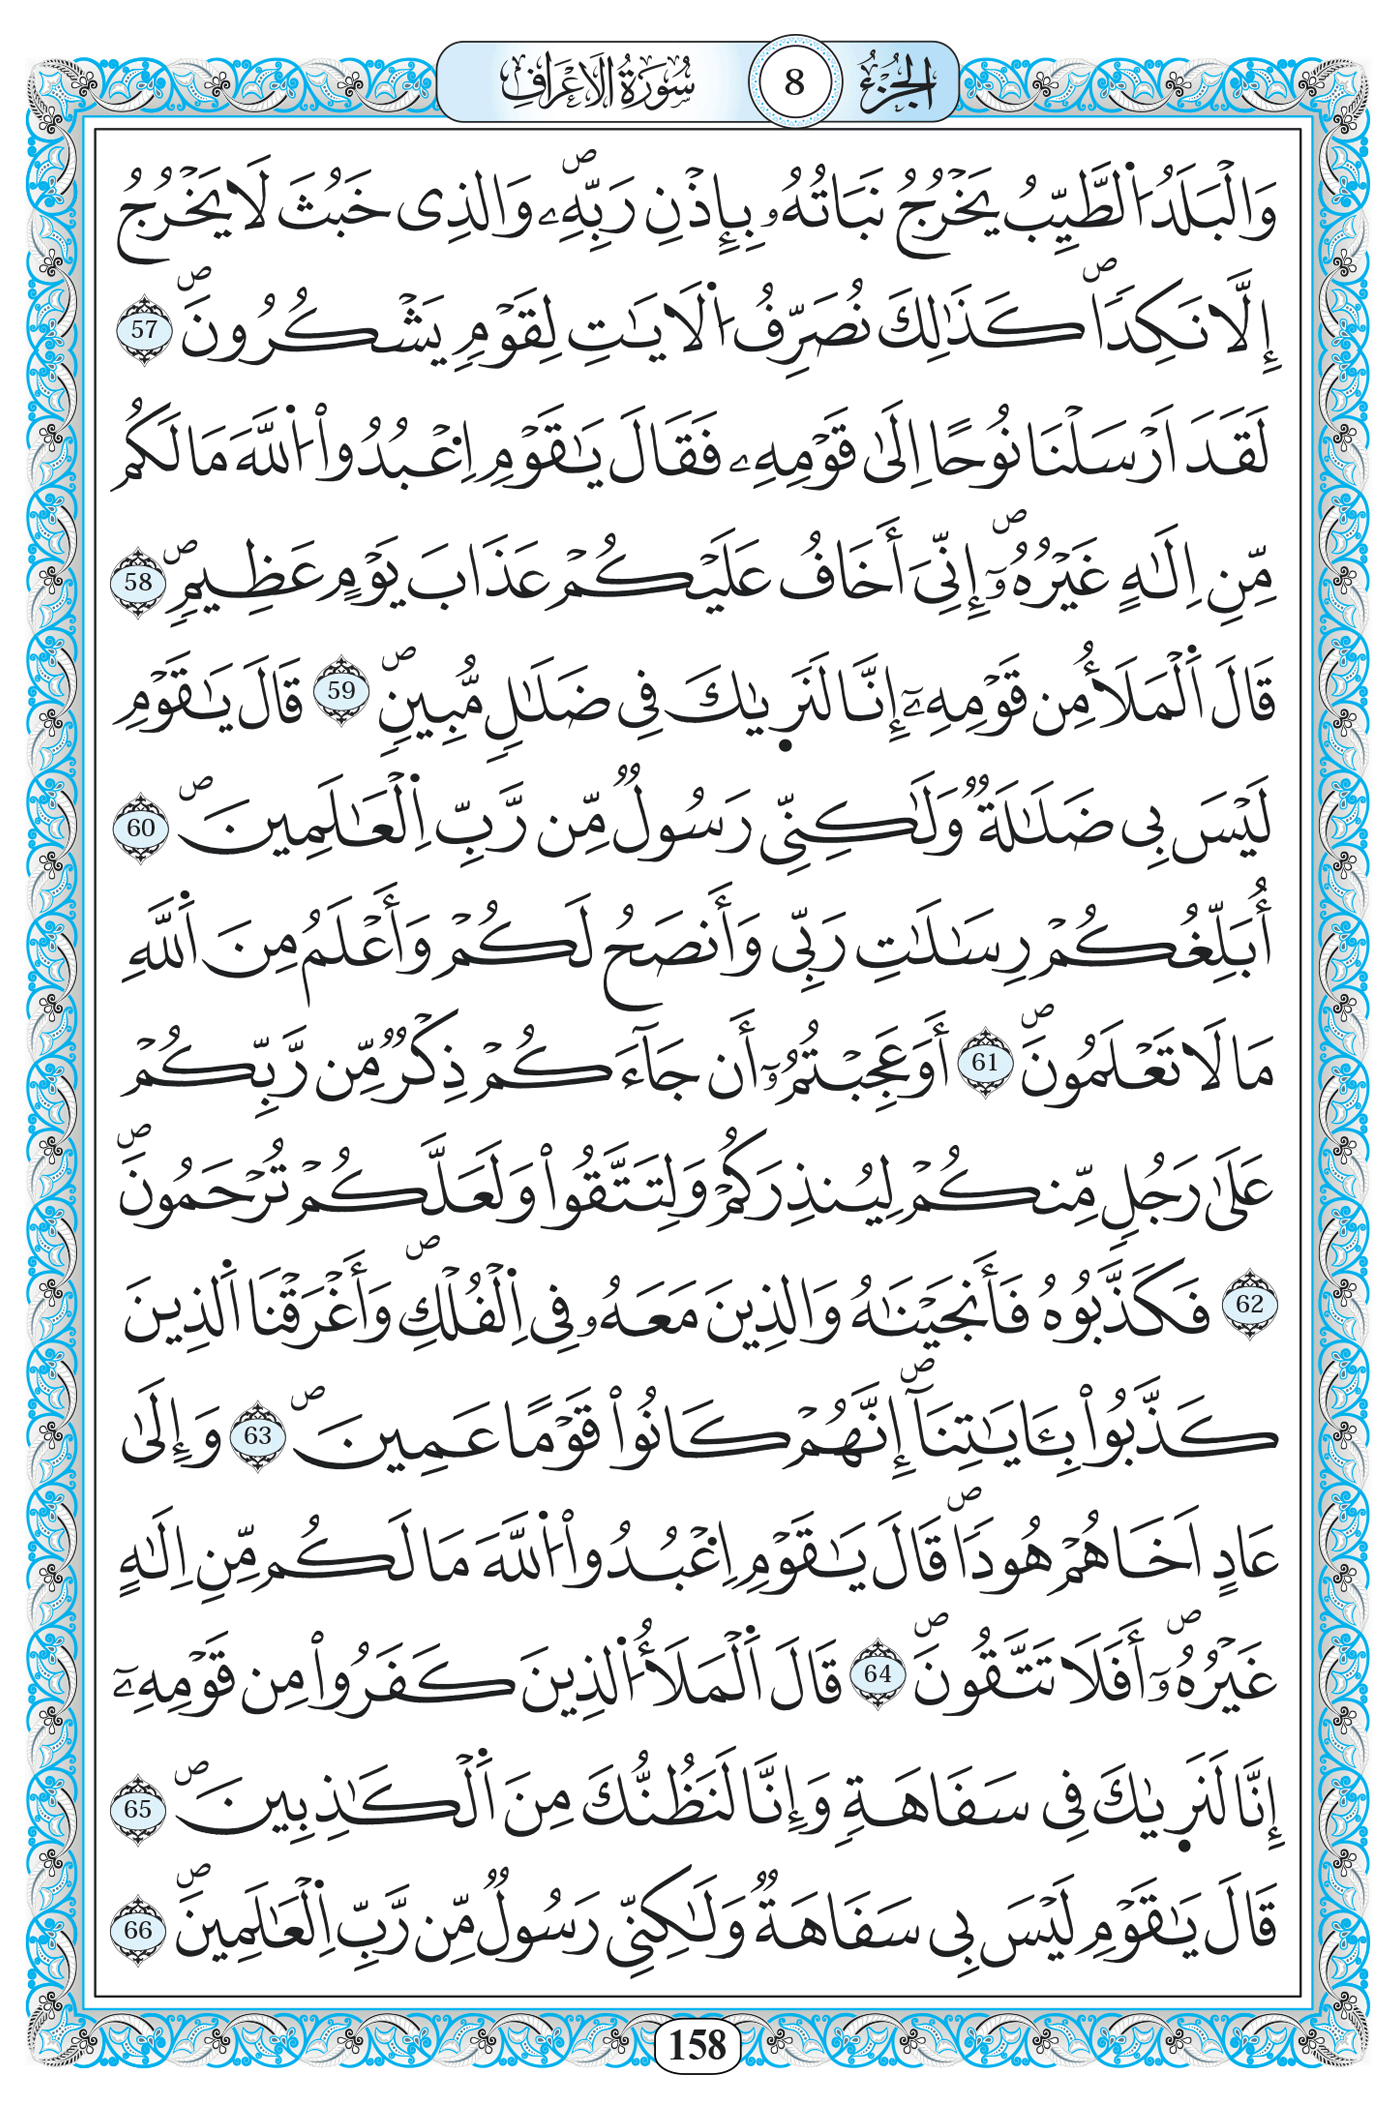 الجزء 8 سورة الاعراف
وَالْبَلَدُ اُ۬لطَّيِّبُ يَخْرُجُ نَبَاتُهُۥ بِإِذْنِ رَبِّهِۦۖ وَالذِى خَبُثَ لَا يَخْرُجُ
إِلَّا نَكِداٗۖ كَذَٰلِكَ نُصَرِّفُ اُ۬لَايَٰتِ لِقَوْمٖ يَشْكُرُونَۖ 57
لَقَدَ اَرْسَلْنَا نُوحًا اِلَىٰ قَوْمِهِۦ فَقَالَ يَٰقَوْمِ اِعْبُدُواْ اُ۬للَّهَ مَا لَكُم
مِّنِ اِلَٰهٍ غَيْرُهُۥٓۖ إِنِّىَ أَخَافُ عَلَيْكُمْ عَذَابَ يَوْمٍ عَظِيمٖۖ 58
قَالَ اَ۬لْمَلَأُ مِن قَوْمِهِۦٓ إِنَّا لَنَر۪يٰكَ فِى ضَلَٰلٖ مُّبِينٖۖ 59 قَالَ يَٰقَوْمِ
لَيْسَ بِى ضَلَٰلَةٞ وَلَٰكِنِّى رَسُولٞ مِّن رَّبِّ اِ۬لْعَٰلَمِينَۖ 60
أُبَلِّغُكُمْ رِسَٰلَٰتِ رَبِّى وَأَنصَحُ لَكُمْ وَأَعْلَمُ مِنَ اَ۬للَّهِ
مَا لَا تَعْلَمُونَۖ 61 أَوَعَجِبْتُمُۥٓ أَن جَآءَكُمْ ذِكْرٞ مِّن رَّبِّكُمْ
عَلَىٰ رَجُلٖ مِّنكُمْ لِيُنذِرَكُمْ وَلِتَتَّقُواْ وَلَعَلَّكُمْ تُرْحَمُونَۖ
62 فَكَذَّبُوهُ فَأَنجَيْنَٰهُ وَالذِينَ مَعَهُۥ فِى اِ۬لْفُلْكِۖ وَأَغْرَقْنَا اَ۬لذِينَ
كَذَّبُواْ بِـَٔايَٰتِنَآۖ إِنَّهُمْ كَانُواْ قَوْمًا عَمِينَۖ 63 وَإِلَىٰ
عَادٍ اَخَاهُمْ هُوداٗۖ قَالَ يَٰقَوْمِ اِعْبُدُواْ اُ۬للَّهَ مَا لَكُم مِّنِ اِلَٰهٍ
غَيْرُهُۥٓۖ أَفَلَا تَتَّقُونَۖ 64 قَالَ اَ۬لْمَلَأُ اُ۬لذِينَ كَفَرُواْ مِن قَوْمِهِۦٓ
إِنَّا لَنَر۪يٰكَ فِى سَفَاهَةٖ وَإِنَّا لَنَظُنُّكَ مِنَ اَ۬لْكَٰذِبِينَۖ 65
قَالَ يَٰقَوْمِ لَيْسَ بِى سَفَاهَةٞ وَلَٰكِنِّى رَسُولٞ مِّن رَّبِّ اِ۬لْعَٰلَمِينَۖ 66
158